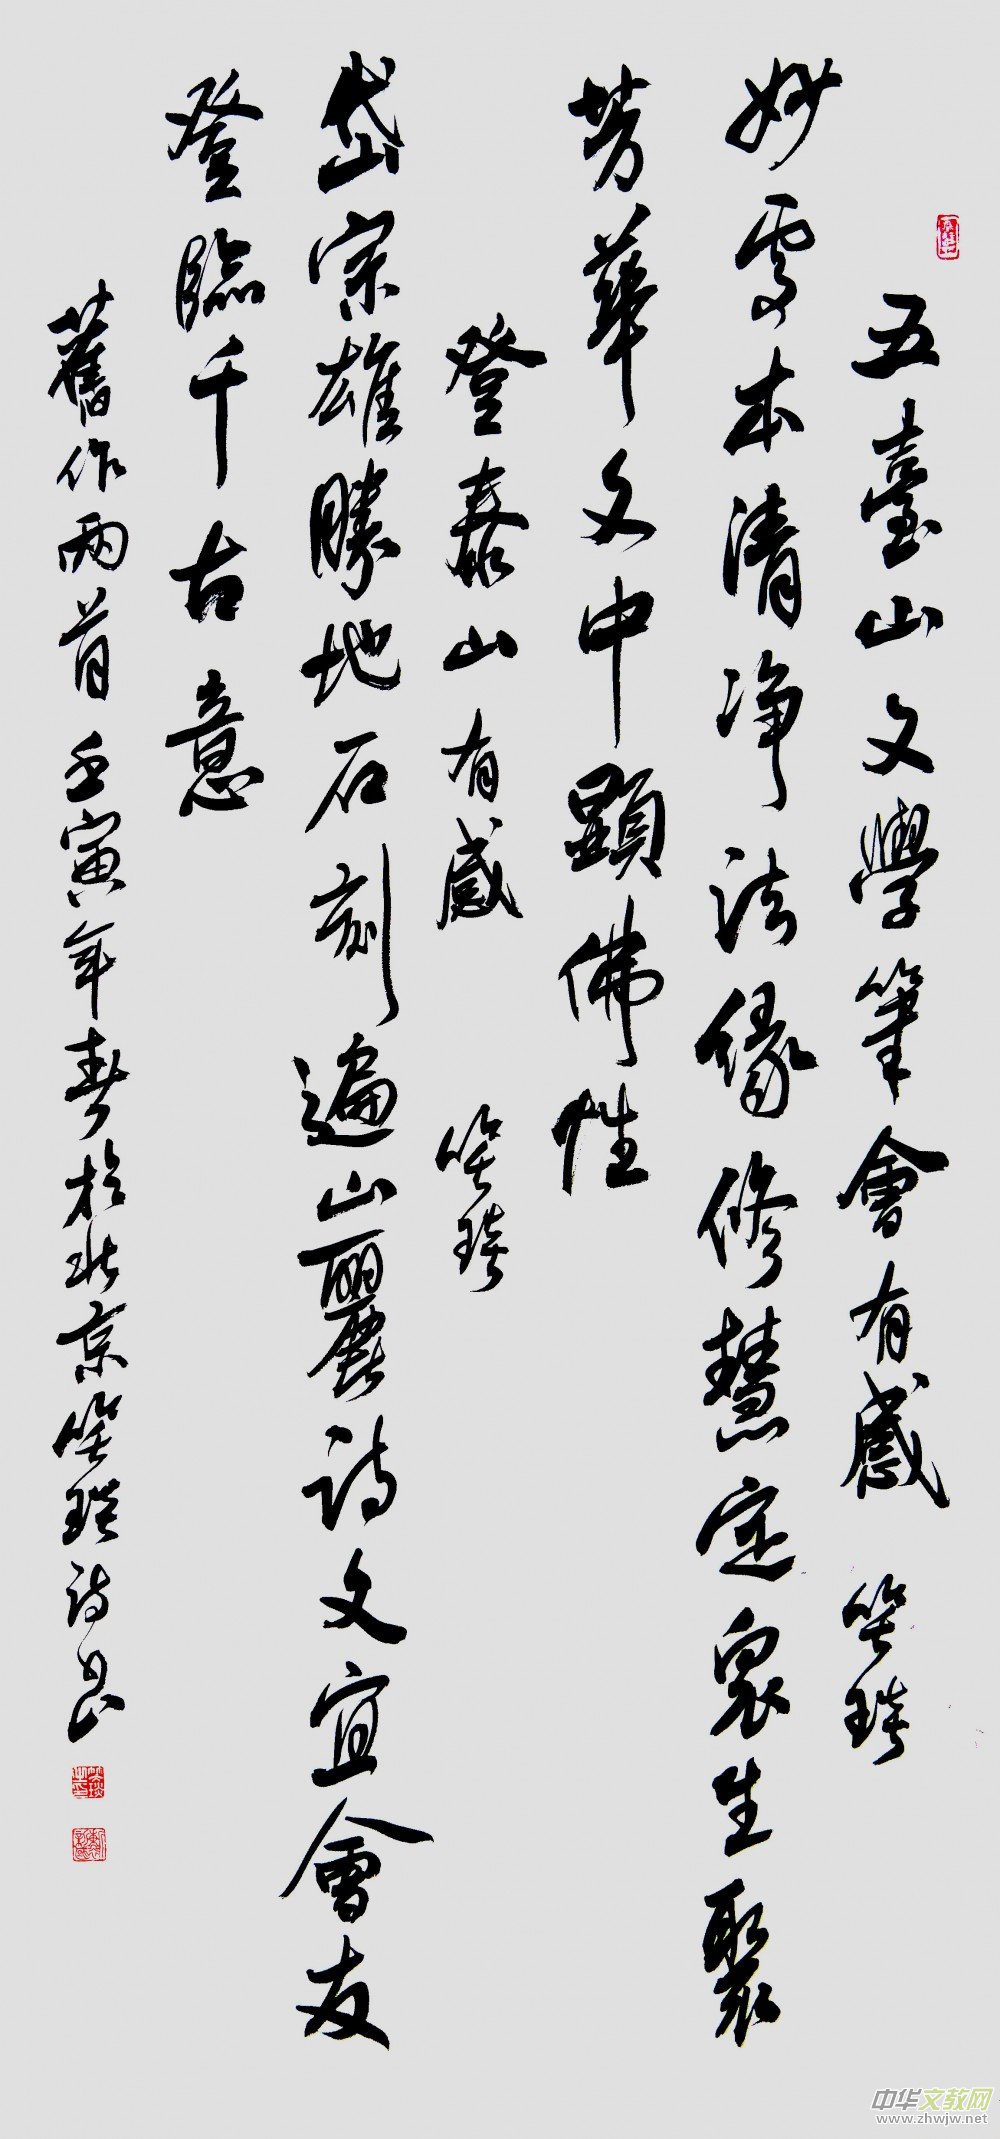 五臺山文學筆會有感 笑琰
妙處本清净法緣修慧定眾生聚
芳華文中顯佛性
登泰山有感 笑琰
岱宗雄勝地石刻遍山麗詩文宜會友
登臨千古意
舊作兩首壬寅年春於北京笑琰詩書
中华文教网
www.zhwjw.net